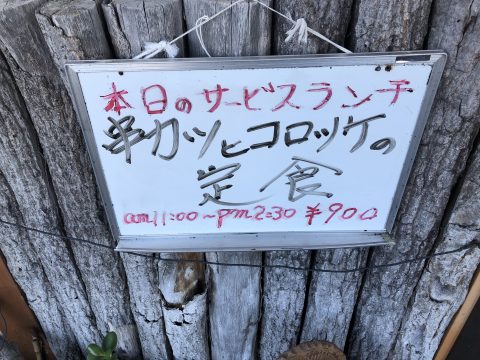 本日のサービスランチ
串カツとコロッケの
定食
am11:00～pm2:30 ¥900